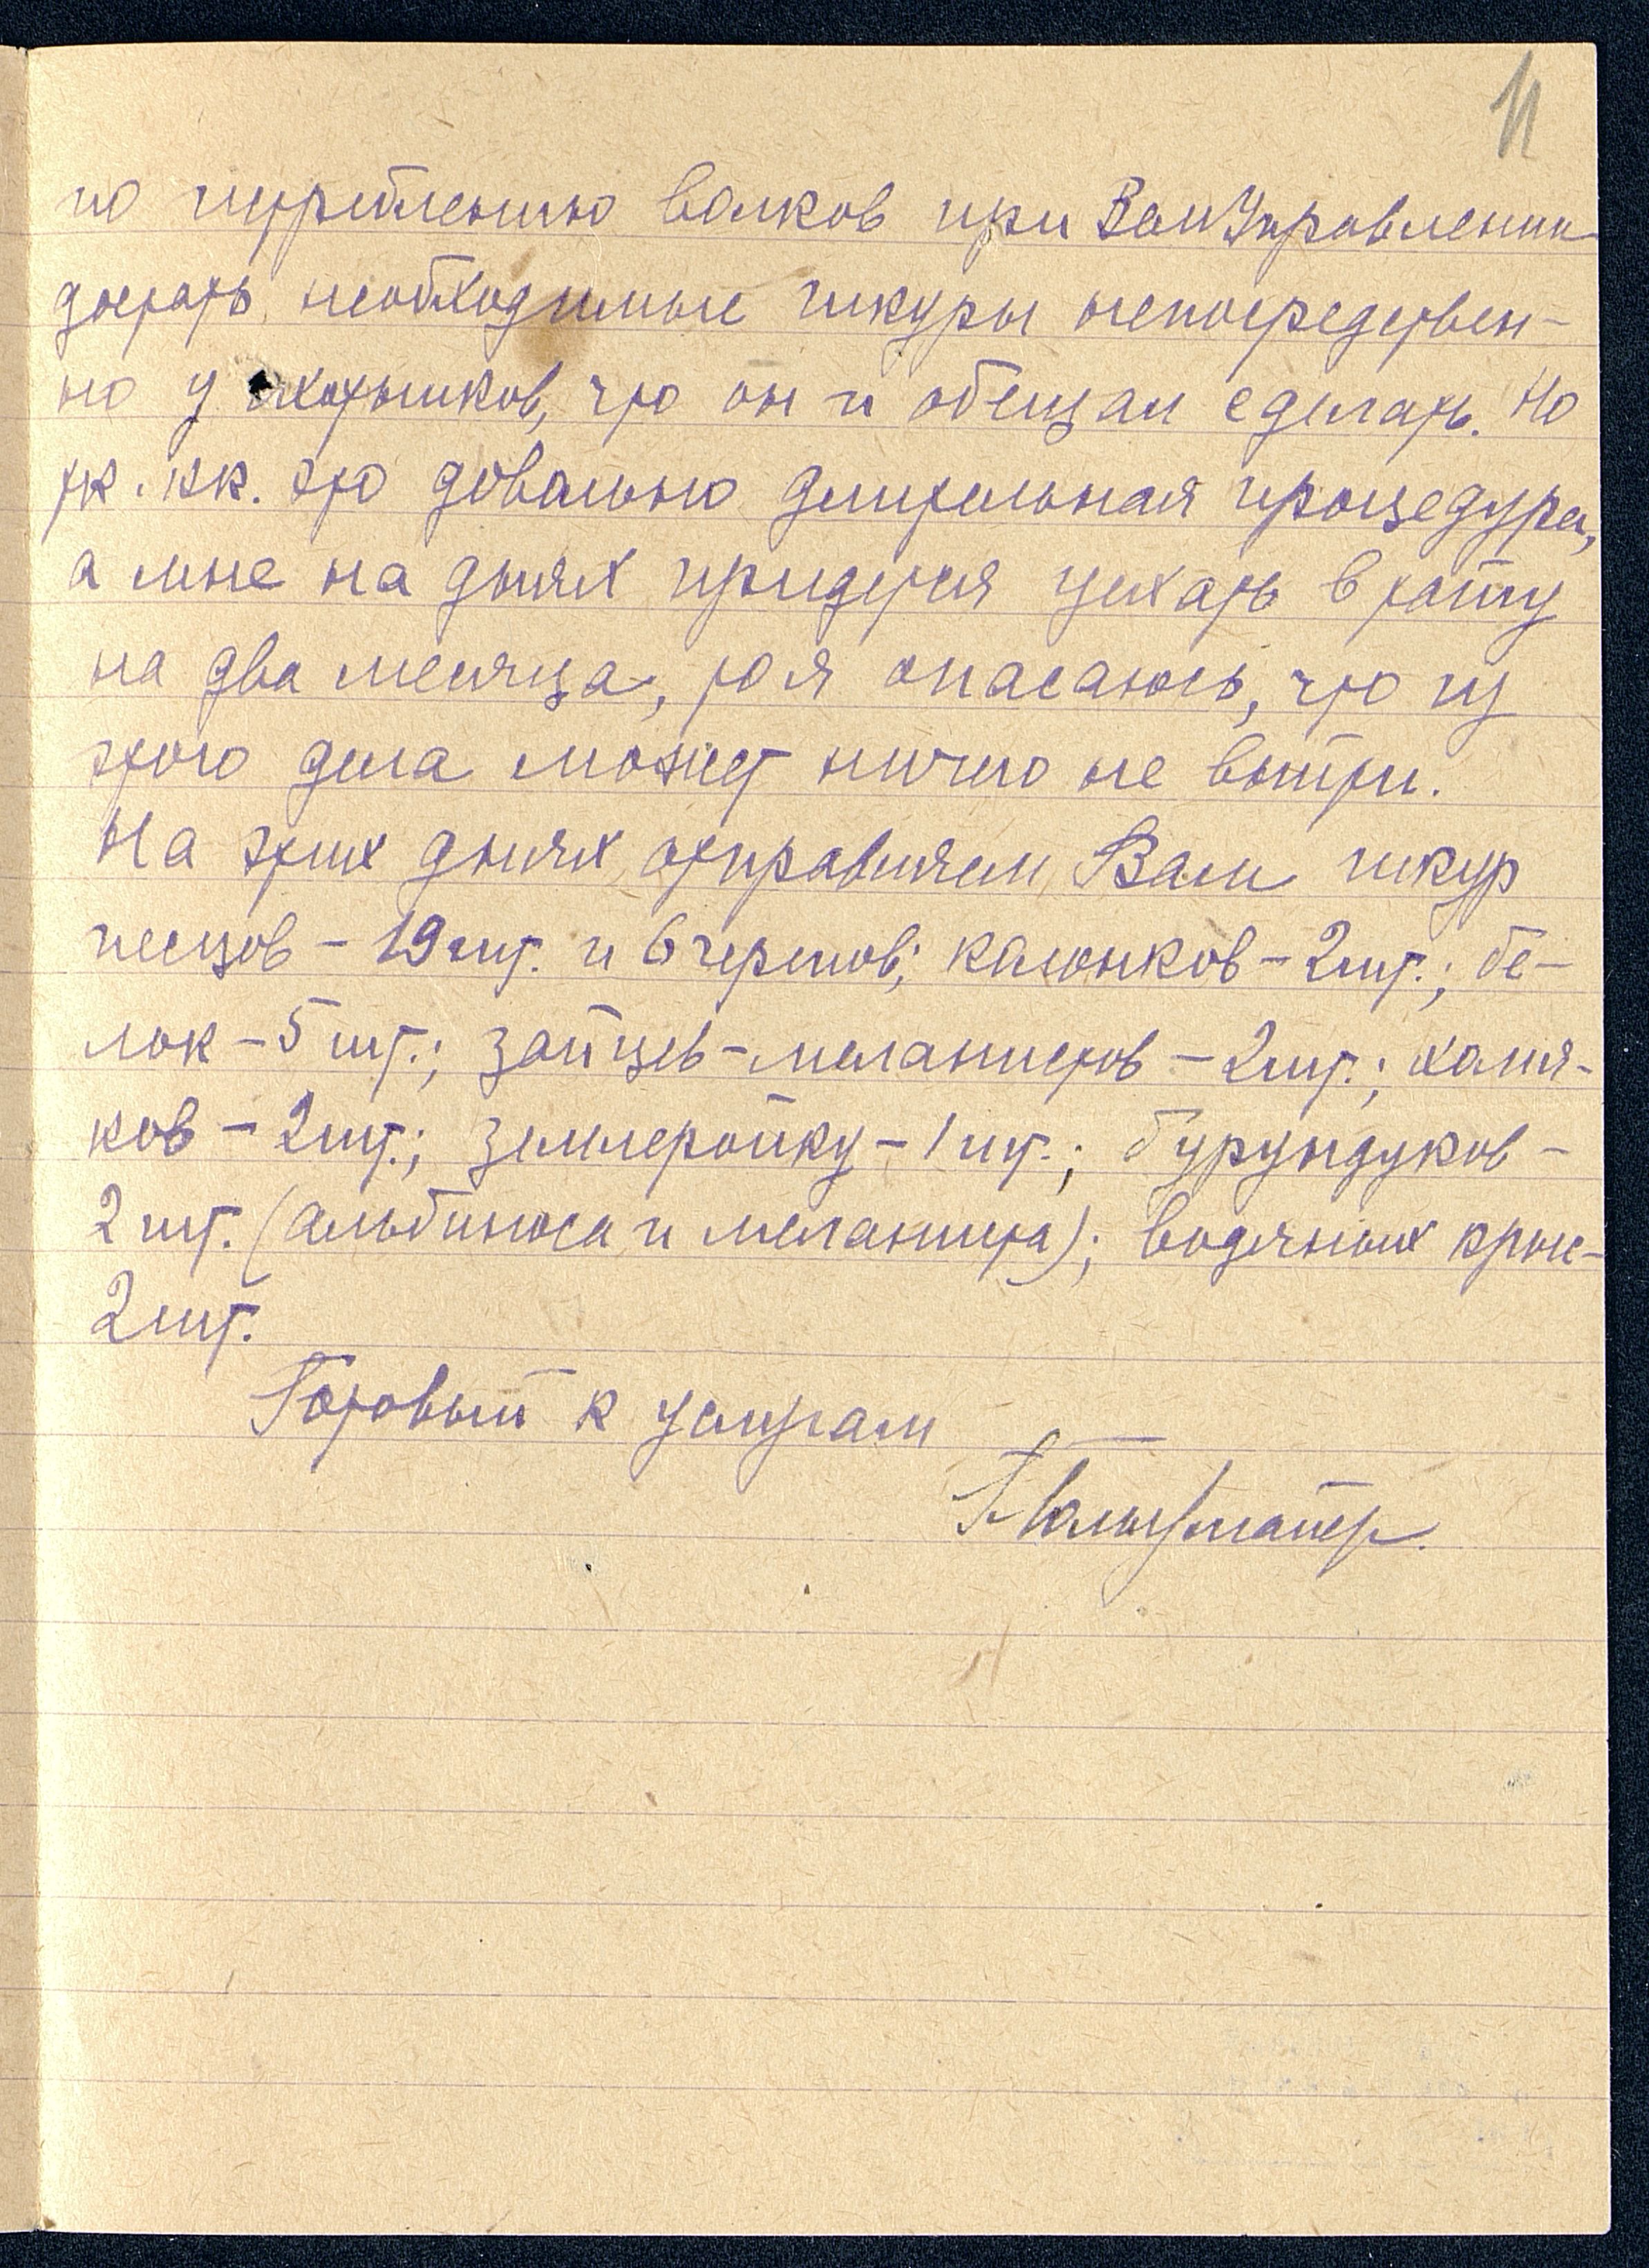 11
по истреблению волков при ЗемУправлении
достать необходимые шкуры непосредствен-
но у охотников, что он и обещал сделать. Но
тк. кк. это довольно длительная процедура,
а мне на днях придется уехать в тайгу
на два месяца, то я опасаюсь, что из
этого дела может ничего не выйти.
На этих днях отправляем Вам шкур
песцов – 19 шт. и 6 черепов; колонков – 2 шт.; бе-
лок – 5 шт.; зайцев-меланистов – 2 шт.; хомя-
ков – 2 шт.; землеройку – 1 шт.; бурундуков –
2 шт. (альбиноса и меланиста); водяных крыс –
2 шт.
Готовый к услугам